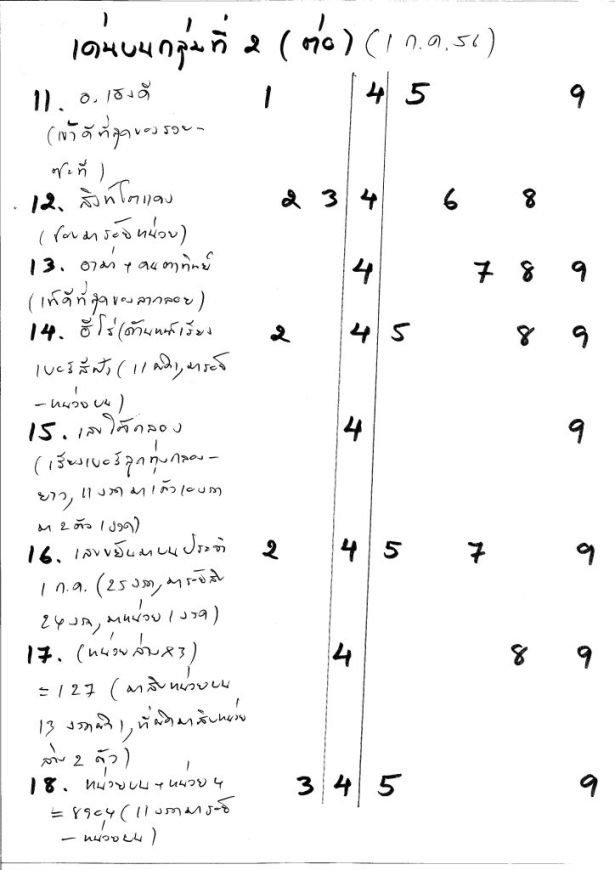 เด่นบนกลุ่มที่ 2 (ต่อ) (1 ก.ค. 56)
11. อ. เฮงดี 1 4 5 9
(เข้าดีที่สุดของรวย-
ซะที)
12. สิงห์โตแดง 2 3 4 6 8
(ชอบมาร้อยหน่วย)
13. อาม่า + คนตาทิพย์ 4 7 8 9
(เข้าดีที่สุดของลากลอย)
14. ฮีโร่ (ด้านหน้าเรียง 2 4 5 8 9
เบอร์ (11 ผิด 1, มาร้อย
-หน่วยบน)
15. เลขใต้กลอง 4 9
(เรียงเบอร์ลูกทุ่งกลอง-
ยาว, 11 งวดมา 1 ตัว
มา 2 ตัว 1 งวด)
16. เลขขยันมาบนประจำ 2 4 5 7 9
1 ก.ค. (25 งวด, มาร้อยสิบ
24 งวด, มาหน่วย 1 งวด)
17. (หน่วยล่าง x 3) 4 8 9
= 127 (มาสิบหน่วยบน
13 งวดผิด 1, ที่ผิดมาสิบหน่วย
ล่าง 2 ตัว)
18. หน่วยบน + หน่วย 4 3 4 5 9
= 8904 (11 งวดมาร้อย
-หน่วยบน)